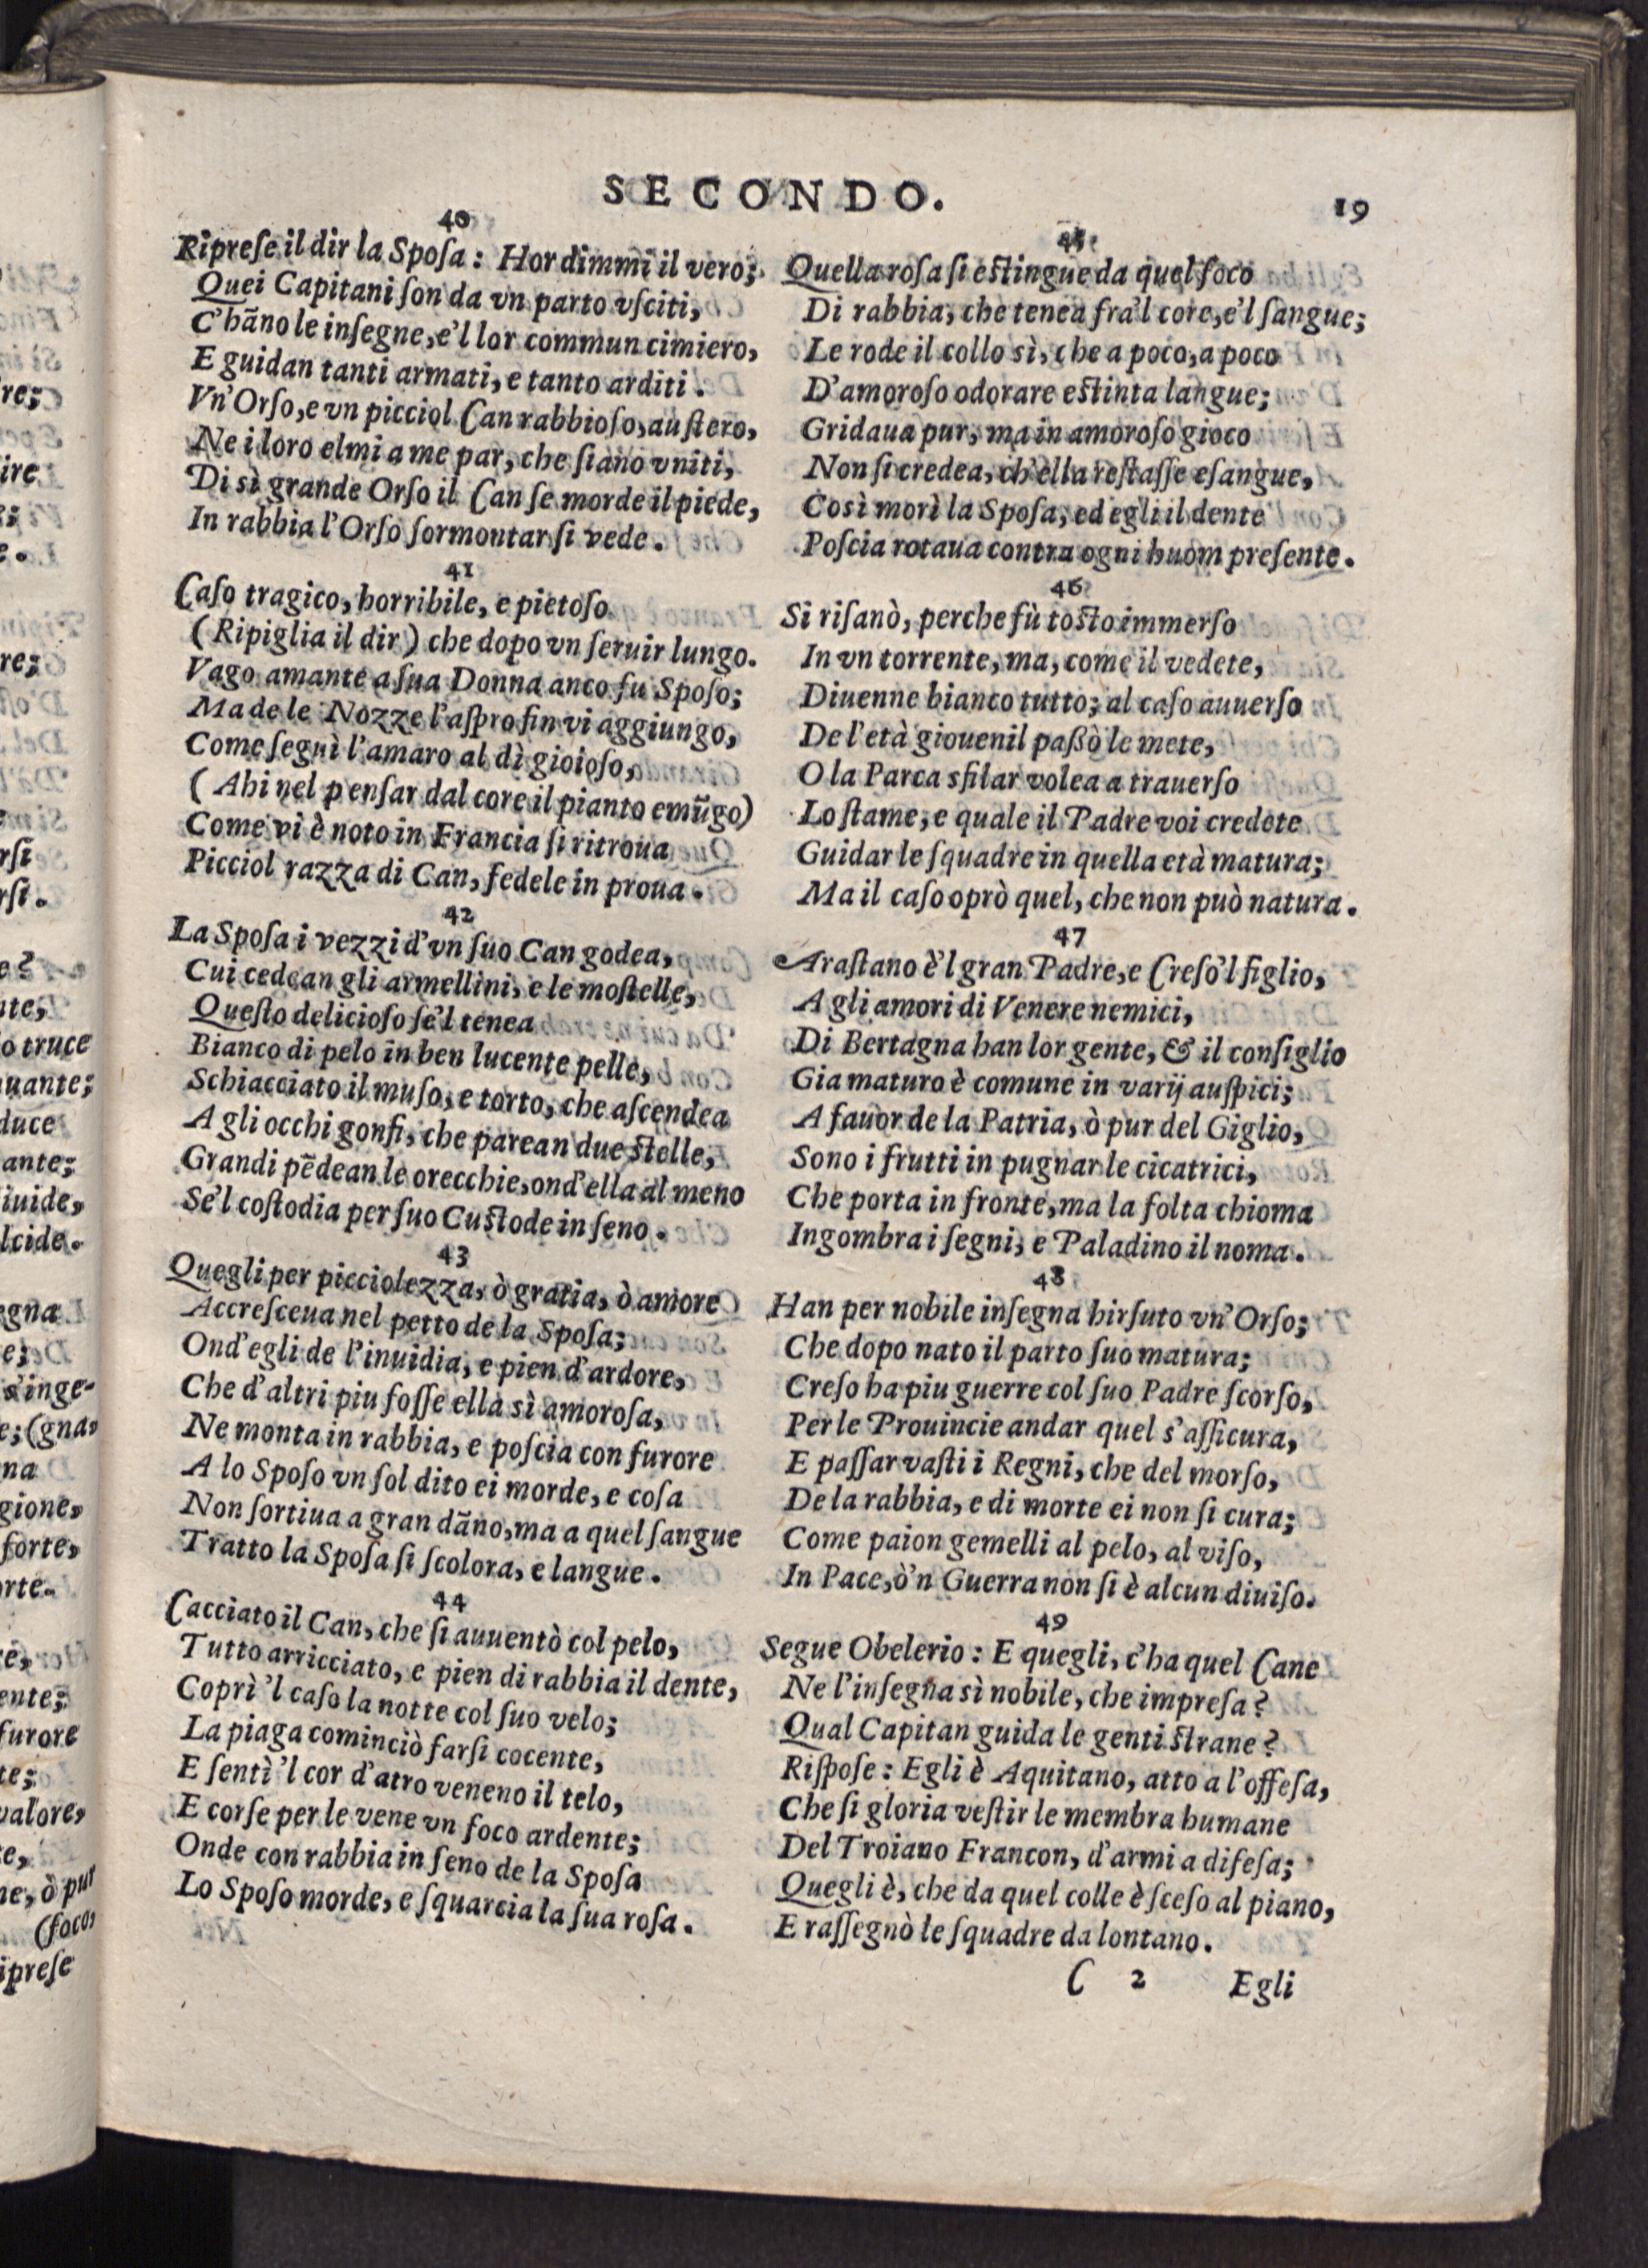 SECONDO.
19
40
Ripreſe il dir la Spoſa: Hor dimmi il vero;
Quei Capitani ſon da vn parto vſciti,
C'hãno le inſegne, e'l lor commun cimiero,
E guidan tanti armati, e tanto arditi.
Vn'Orſo, e vn picciol Can rabbioſo, auſtero,
Ne i loro elmi a me par, che ſiano vniti,
Di sì grande Orſo il Can ſe morde il piede,
In rabbia l'Orſo ſormontar ſi vede.
41
Caſo tragico, horribile, e pietoſo
(Ripiglia il dir) che dopo vn ſeruir lungo.
Vago amante a ſua Donna anco fu Spoſo;
Ma de le Nozze l'aſpro fin vi aggiungo,
Come ſeguì l'amaro al dì gioioſo,
(Ahi nel penſar dal core il pianto emũgo)
Come vi è noto in Francia ſi ritroua
Picciol razza di Can, fedele in proua.
42
La Spoſa i vezzi d'vn ſuo Can godea,
Cui cedean gli armellini, e le moſtelle,
Queſto delicioſo ſe'l tenea
Bianco di pelo in ben lucente pelle,
Schiacciato il muſo, e torto, che aſcendea
A gli occhi gonfi, che parean due ſtelle,
Grandi pẽdean le orecchie, ond'ella al meno
Se'l coſtodia per ſuo Cuſtode in ſeno.
43
Quegli per picciolezza, ò gratia, ò amore
Accreſceua nel petto de la Spoſa;
Ond'egli de l'inuidia, e pien d'ardore,
Che d'altri piu foſſe ella sì amoroſa,
Ne monta in rabbia, e poſcia con furore
A lo Spoſo vn ſol dito ei morde, e coſa
Non ſortiua a gran dãno, ma a quel ſangue
Tratto la Spoſa ſi ſcolora, e langue.
44
Cacciato il Can, che ſi auuentò col pelo,
Tutto arricciato, e pien di rabbia il dente,
Coprì 'l caſo la notte col ſuo velo;
La piaga cominciò farſi cocente,
E ſentì 'l cor d'atro veneno il telo,
E corſe per le vene vn foco ardente;
Onde con rabbia in ſeno de la Spoſa
Lo Spoſo morde, e ſquarcia la ſua roſa.
45
Quella roſa ſi eſtingue da quel foco
Di rabbia, che tenea fra'l core, e'l ſangue;
Le rode il collo sì, che a poco, a poco
D'amoroſo odorare eſtinta langue;
Gridaua pur, ma in amoroſo gioco
Non ſi credea, ch'ella reſtaſſe eſangue,
Così morì la Spoſa, ed egli il dente
Poſcia rotaua contra ogni huom preſente.
46
Si riſanò, perche fù toſto immerſo
In vn torrente, ma, come il vedete,
Diuenne bianco tutto; al caſo auuerſo
De l'età giouenil paßò le mete,
O la Parca sfilar volea a trauerſo
Lo ſtame, e quale il Padre voi credete
Guidar le ſquadre in quella età matura;
Ma il caſo oprò quel, che non può natura.
47
Araſtano è'l gran Padre, e Creſo'l figlio,
A gli amori di Venere nemici,
Di Bertagna han lor gente, & il conſiglio
Gia maturo è comune in varij auſpici;
A fauor de la Patria, ò pur del Giglio,
Sono i frutti in pugnar le cicatrici,
Che porta in fronte, ma la folta chioma
Ingombra i ſegni, e Paladino il noma.
48
Han per nobile inſegna hirſuto vn'Orſo;
Che dopo nato il parto ſuo matura;
Creſo ha piu guerre col ſuo Padre ſcorſo,
Per le Prouincie andar quel s'aſſicura,
E paſſar vaſti i Regni, che del morſo,
De la rabbia, e di morte ei non ſi cura;
Come paion gemelli al pelo, al viſo,
In Pace, ò'n Guerra non ſi è alcun diuiſo.
49
Segue Obelerio: E quegli, c'ha quel Cane
Ne l'inſegna sì nobile, che impreſa?
Qual Capitan guida le genti ſtrane?
Riſpoſe: Egli è Aquitano, atto a l'offeſa,
Che ſi gloria veſtir le membra humane
Del Troiano Francon, d'armi a difeſa;
Quegli è, che da quel colle è ſceſo al piano,
E raſſegnò le ſquadre da lontano.
C 2 Egli